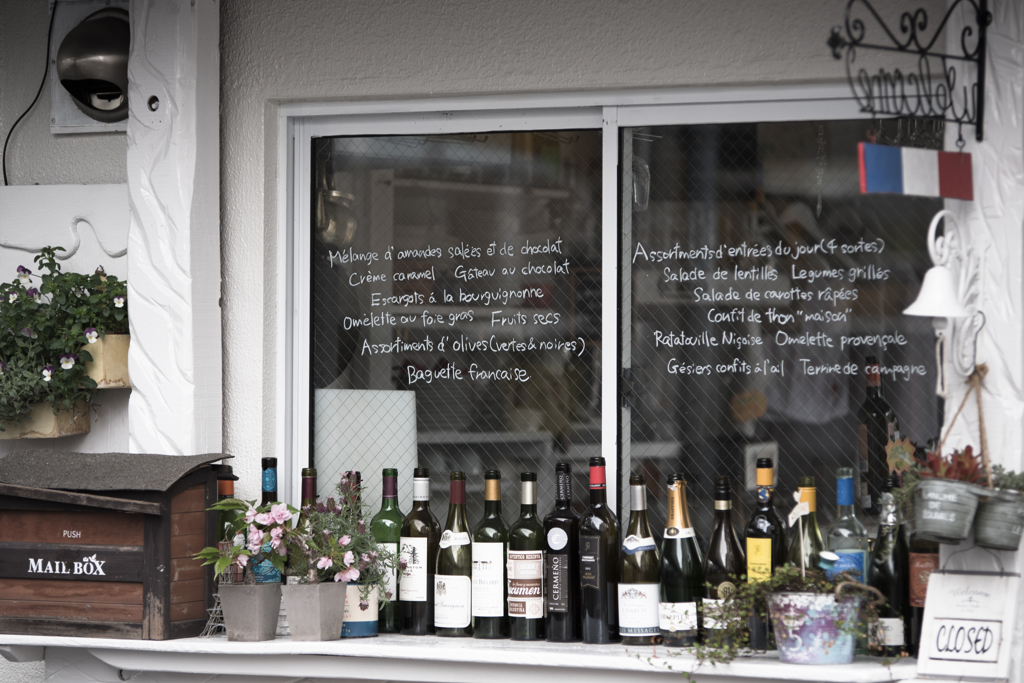 Mélange d'amandes salées et de chocolat
Crème caramel Gâteau au chocolat
Escargots à la bourguignonne
Omelette au foie gras Fruits secs
Assortiments d'olives (vertes & noires)
Baguette francaise
Assortiments d'entrées du jour (4 sortes)
Salade de lentilles Legumes grillés
Salade de carottes râpées
Confit de thon "maison"
Ratatouille Niçoise Omelette provençale
Gésiers confits à l'ail Terrine de campagne
PUSH
MAIL BOX
CERMEÑO
CLOSED